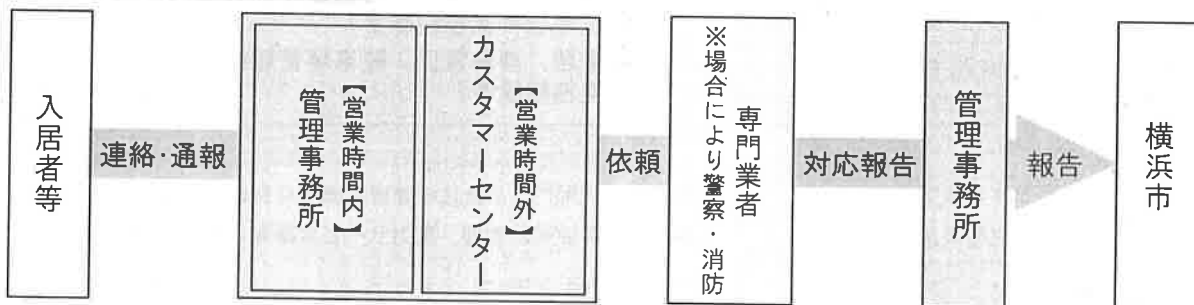 入居者等
連絡・通報
【営業時間内】
管理事務所
【営業時間外】
カスタマーセンター
依頼
専門業者
※場合により警察・消防
対応報告
管理事務所
報告
横浜市